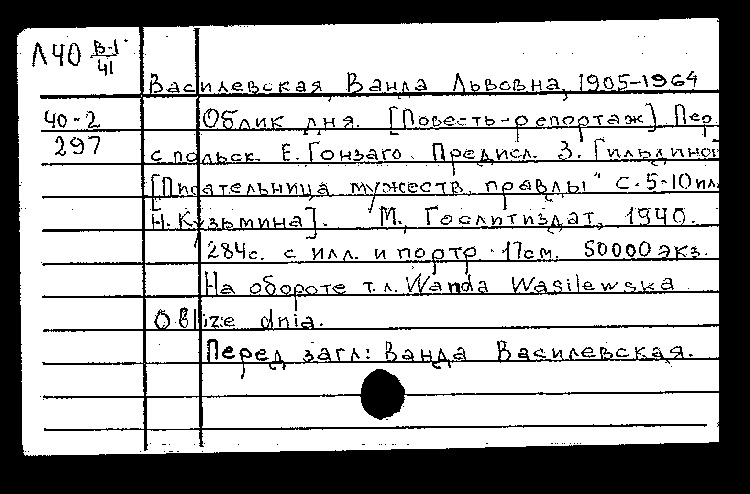 Л40 В-1
41
Василевская, Ванда Львовна, 1905-1964
40-2 Облик дня. [Повесть-репортаж] Пер.
297 с польск. Е. Гонзаго. Предисл. З. Гильдиной
[Писательница мужеств. правды" с. 5-10 илл.
Н. Кузьмина]. М., Гослитиздат, 1940.
284с. с илл. и портр. 17см. 50000 экз.
На обороте т.л. Wanda Wasilewska
Oblize dnia.
Перед загл: Ванда Василевская.